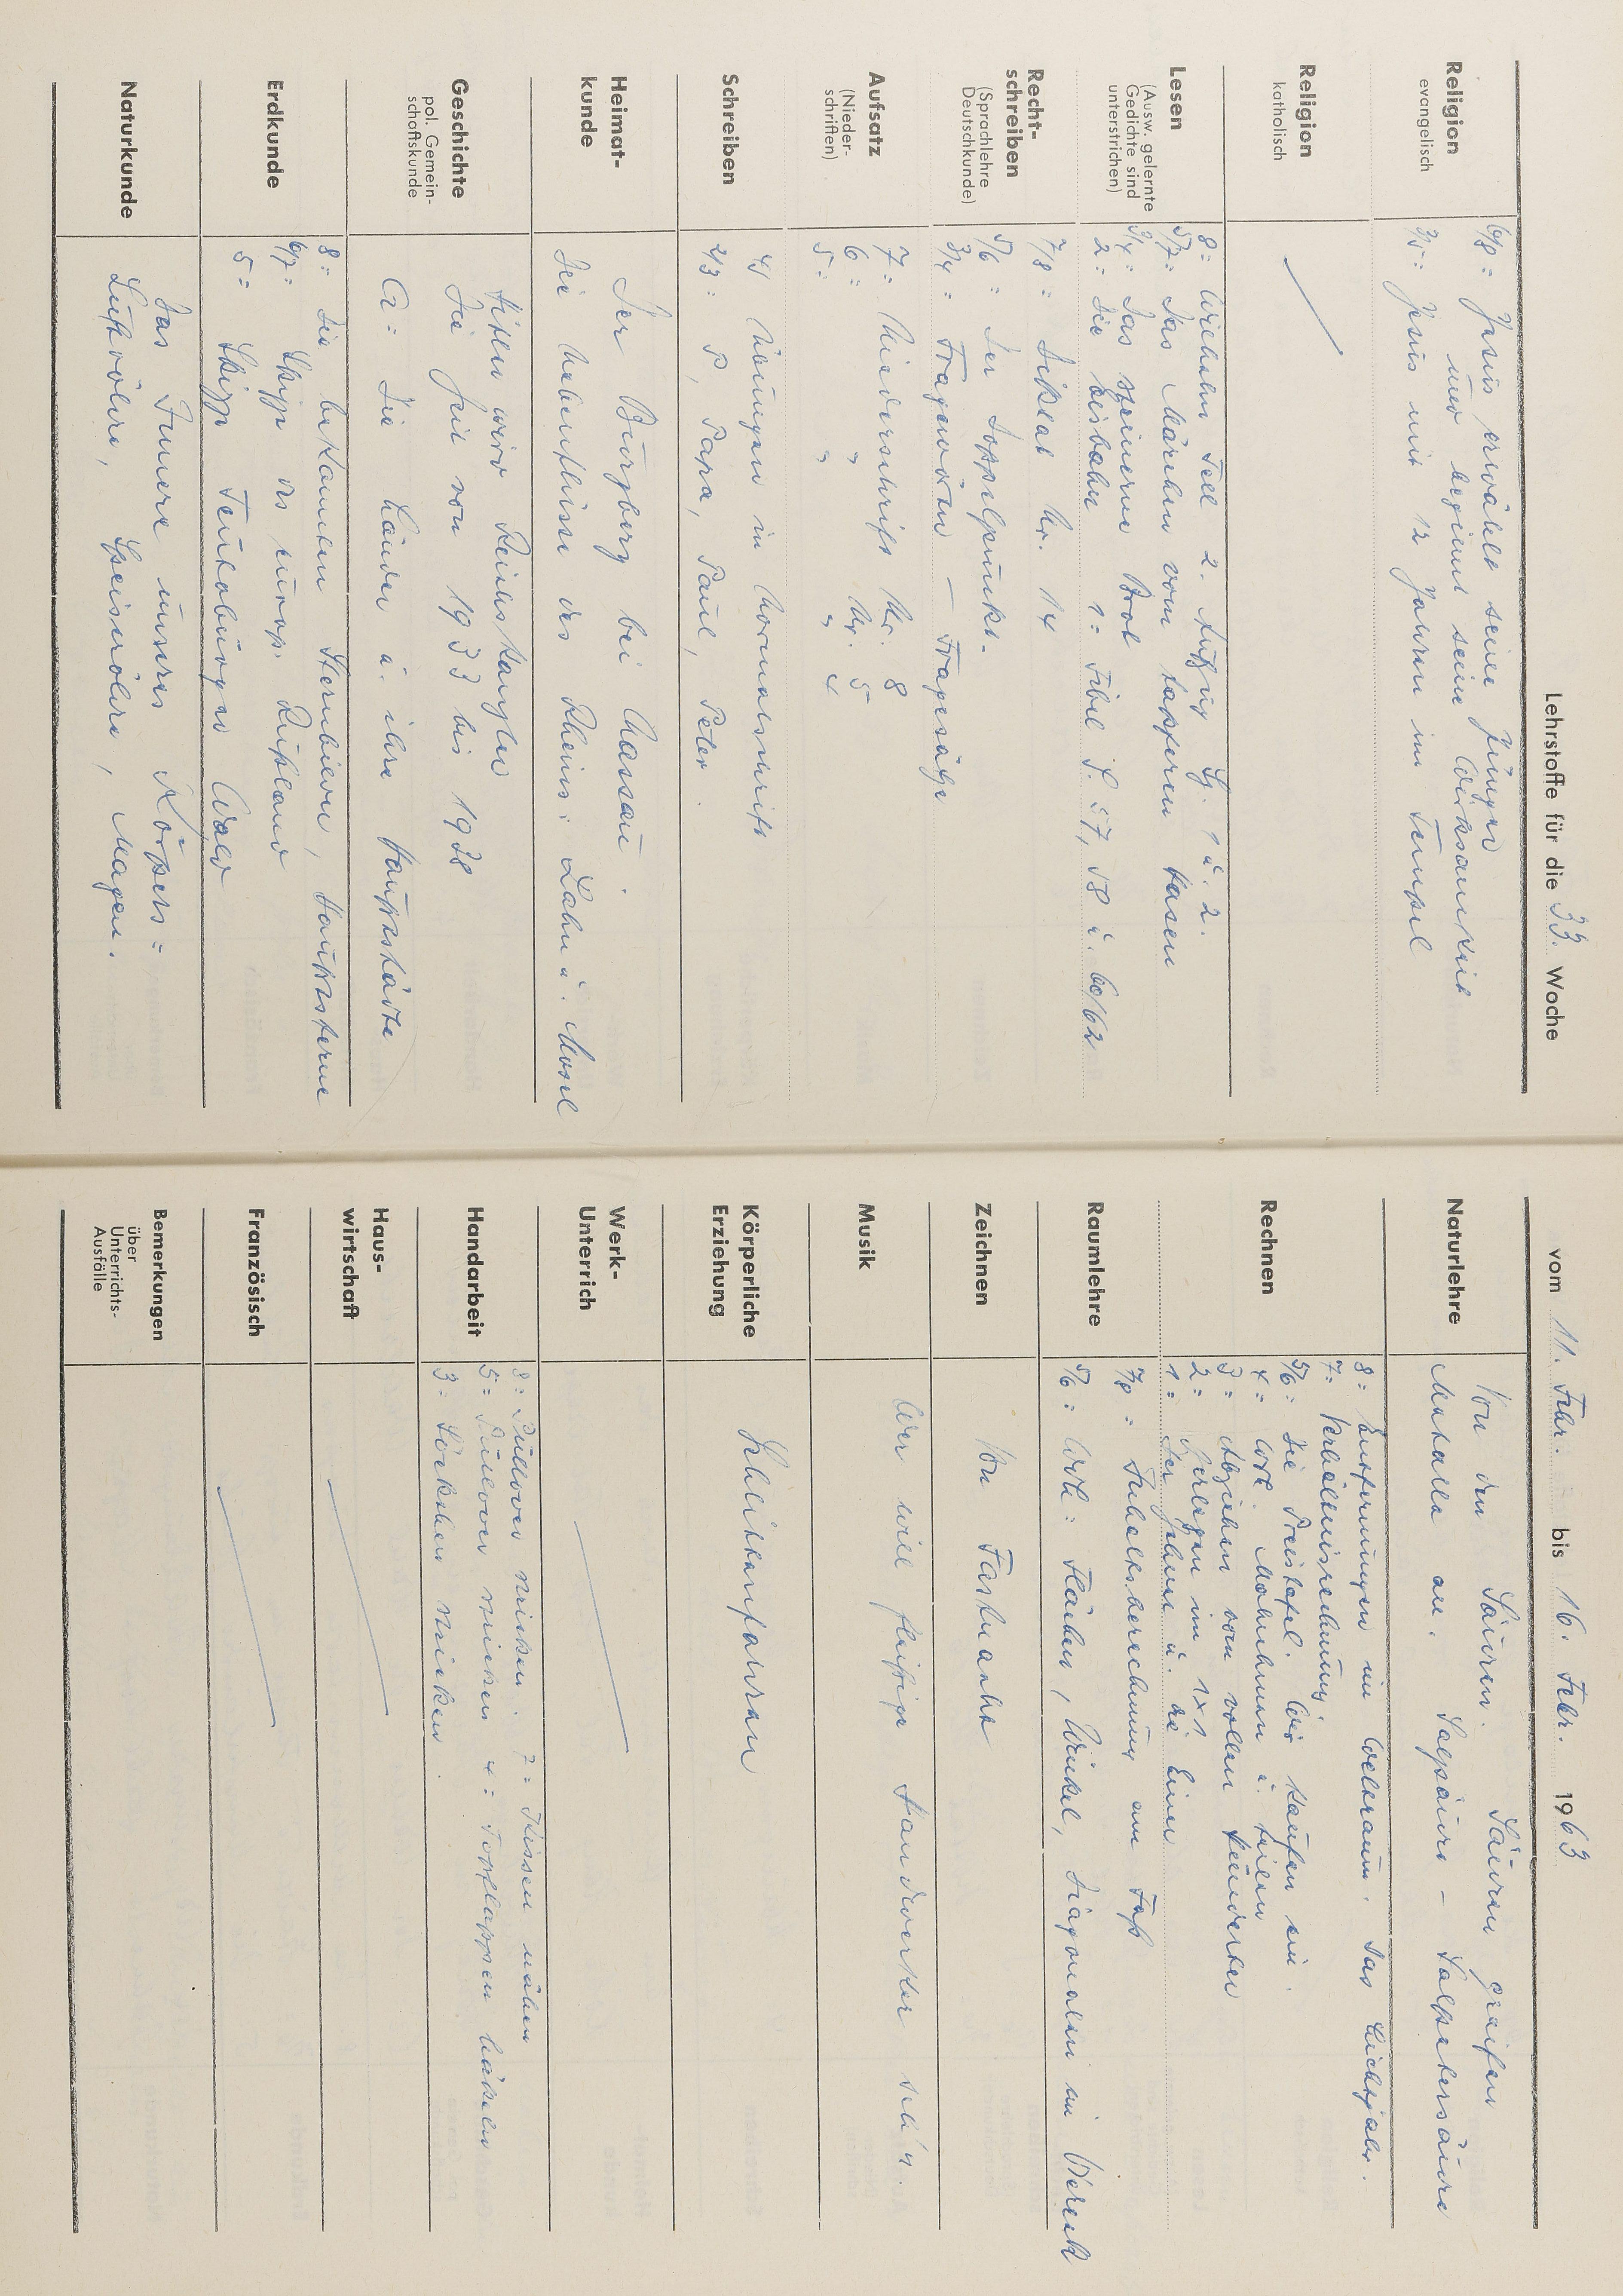 Lehrstoffe für die 33. Woche
Religion
evangelisch
6/8 = Jesus erwählt seine Jünger
und beginnt seine Wirksamkeit
3/5 = Jesus mit 12 Jahren im Tempel
Religion
katholisch
Lesen
(Ausw. gelernte
Gedichte sind
unterstrichen)
8 = Wilhelm Tell 2. Aufzug Sz. 1 u. 2.
5/7 = Das Märchen vom tapferen Hasen
3/4 = Das steinerne Brot
2 = Die Eisbahn 1 = Fibel S. 57, 58 u. 60/62
Recht-
schreiben
(Sprachlehre
Deutschkunde)
7/8 = Diktat Nr. 14
5/6 = Der Doppelpunkt.
3/4 = Fragewörter — Fragesätze
Aufsatz
(Nieder-
schriften)
7 = Niederschrift Nr. 8
6 = " Nr. 5
5 = " " 4
Schreiben
Übungen in Normalschrift
2/3 = P, Papa, Paul, Peter.
Heimat-
kunde
Der Burgberg bei Nassau.
Die Nebenflüsse des Rheins: Lahn u. Mosel
Geschichte
pol. Gemein-
schaftskunde
Hitler wird Reichskanzler
Die Zeit von 1933 bis 1938
G = Die Länder u. ihre Hauptstädte
Erdkunde
8 = Die bekannten Sternbilder, Hauptsterne
6/7 = Skizze des europ. Rußland
5 = Skizze Teutoburger Wald
Naturkunde
Das Innere unseres Körpers =
Luftröhre, Speiseröhre, Magen.
vom 11. Febr. bis 16. Febr. 1963
Naturlehre
Von den Säuren. Säuren greifen
Metalle an. Salzsäure – Salpetersäure
Rechnen
8 = Entfernungen im Weltraum. Das Lichtjahr.
7 = Verhältnisrechnung
5/6 = Die Preistafel. Wir kaufen ein.
4 = Wdh. Malnehmen u. teilen
3 = Abziehen vom vollen Hunderter
2 = Zerlegen im 1x1
1 = Der Zehner u. die Einer
Raumlehre
7/8 = Inhaltsberechnung am Faß
5/6 = Wdh: Flächen, Winkel, Diagonalen im Viereck
Zeichnen
Von Fastnacht
Musik
Wer will fleißige Handwerker seh'n.
Körperliche
Erziehung
Schlittenfahren
Werk-
Unterrich
Handarbeit
8 = Pullover stricken. 7 = Kissen nähen
5 = Pullover stricken 4 = Topflappen häkeln
3 = Söckchen stricken.
Haus-
wirtschaft
Französisch
Bemerkungen
über
Unterrichts-
Ausfälle